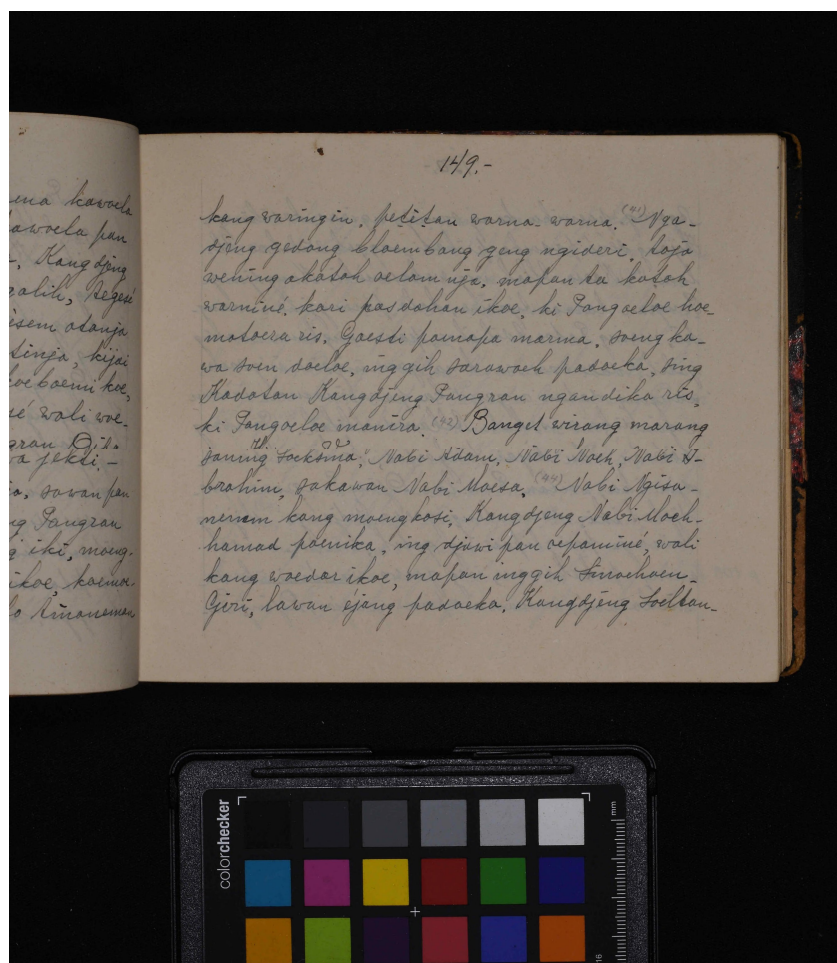 ena kawoela
awoela pan
Kangdjeng
galih, tegesé
èsem atanja
tinja, kijai
koe boemi koe,
sé wali woe-
gran
wa jekti.-
sawan pan
ng Pangran
g iki, moeng-
ikoe, kaemoe
lo Amaneman
149.-
kang waringin, petitan warna-warna. (41) Nga-
djeng gedong bloembang geng ngideri, toja
wening akatah oelam nja, mapan ta katah
warniné, kari pasdahan ikoe, ki Pangoeloe hoe-
matoera ris, Goesti pamapa marma, soeng ka-
wa soen doeloe, inggih sarawoeh padoeka, sing
Kadatan Kangdjeng Pangran ngandika ris,
ki Pangoeloe manira. (42) Banget wirang marang
janing Soeksma, Nabi Adam, Nabi Noeh, Nabi I-
brahim, sakawan Nabi Moesa, (44) Nabi Ngisa
nenem kang moengkasi, Kangdjeng Nabi Moch-
hamad poenika, ing djawi pan oepaminé, wali
kang woedar ikoe, mapan inggih Sinoehoen-
Giri, lawan éjang padoeka, Kangdjeng Soeltan-
colorchecker
mm
16